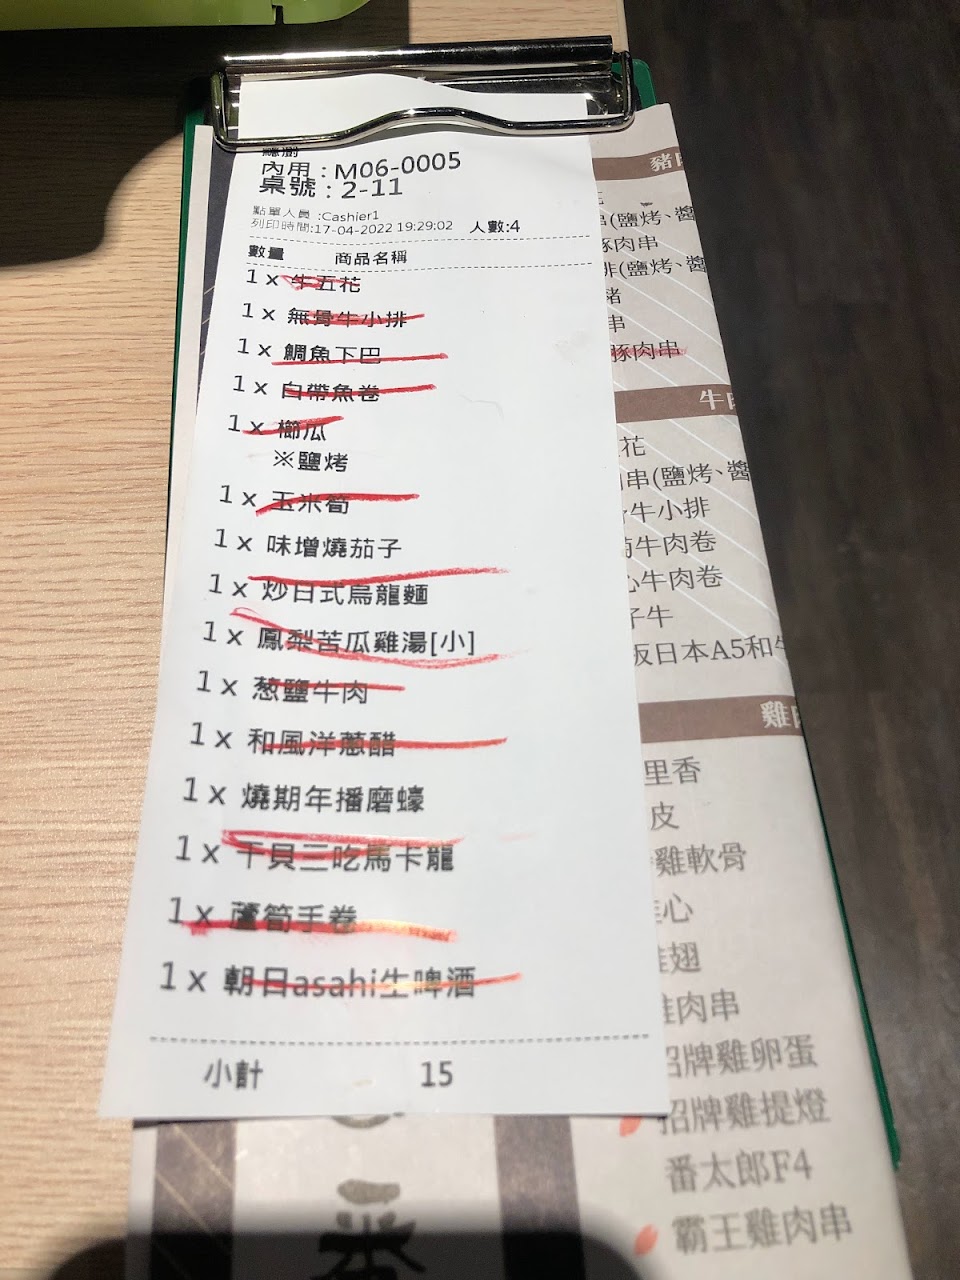 內用：M06-0005
桌號：2-11
點單人員 :Cashier1
列印時間:17-04-2022 19:29:02 人數:4
數量 商品名稱
1 x 牛五花
1 x 無骨牛小排
1 x 鯛魚下巴
1 x 白帶魚卷
1 x 櫛瓜
※鹽烤
1 x 玉米筍
1 x 味增燒茄子
1 x 炒日式烏龍麵
1 x 鳳梨苦瓜雞湯[小]
1 x 葱鹽牛肉
1 x 和風洋蔥醋
1 x 燒期年播磨蠔
1 x 干貝三吃馬卡龍
1 x 蘆筍手卷
1 x 朝日asahi生啤酒
小計 15
豬
(鹽烤、醬
豚肉串
(鹽烤、醬
豬
串
豚肉串
牛
花
串(鹽烤、醬
牛小排
牛肉卷
心牛肉卷
子牛
日本A5和牛
雞
里香
皮
雞軟骨
心
翅
肉串
招牌雞卵蛋
招牌雞提燈
番太郎F4
霸王雞肉串
一番